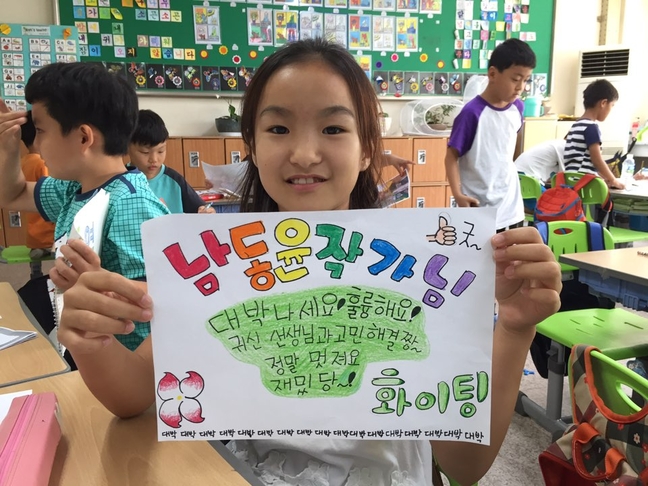 남동윤작가님
굿~
대박나세요! 훌륭해요!
귀신 선생님과 고민 해결 짱~
정말 멋져요
재밌당~!
화이팅
대박 대박 대박 대박 대박 대박 대박 대박 대박 대박 대박 대박 대박 대박 대박 대박 대박